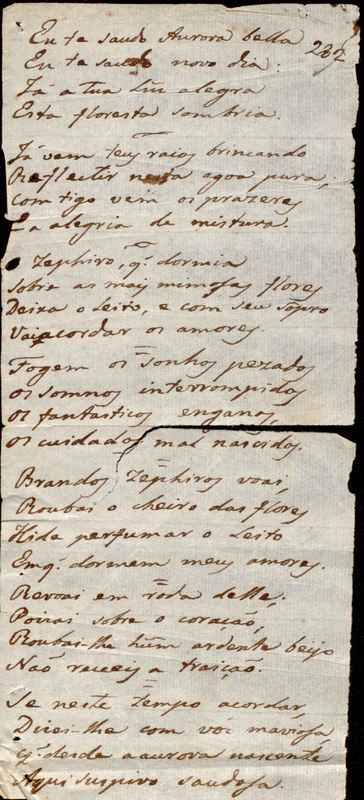 Eu te saudo Aurora bella
282
Eu te saudo novo dia
Já a tua lus alegra
Esta floresta sombria.
Já vem teus raios brincando
Reflectir nesta agoa pura,
Comtigo vem os prazeres
E a alegria de mistura.
O Zephiro, q. dormia
Sobre as mais mimosas flores
Deixa o Leito, e com seu sopro
Vai acordar os amores.
Fogem os sonhos pezados
os somnos interrompidos
os fantasticos enganos,
os cuidados mal nascidos.
Brandos Zephiros voai,
Roubai o cheiro das flores
Hide perfumar o Leito
Em q. dormem meus amores.
Revoai em roda delle,
Poizai sobre o coração,
Roubai-lhe hum ardente beijo
Não receeis a traição.
Se neste tempo acordar,
Dizei-lhe com vós maviosa
q. desde a aurora nascente
Aqui suspiro saudosa.